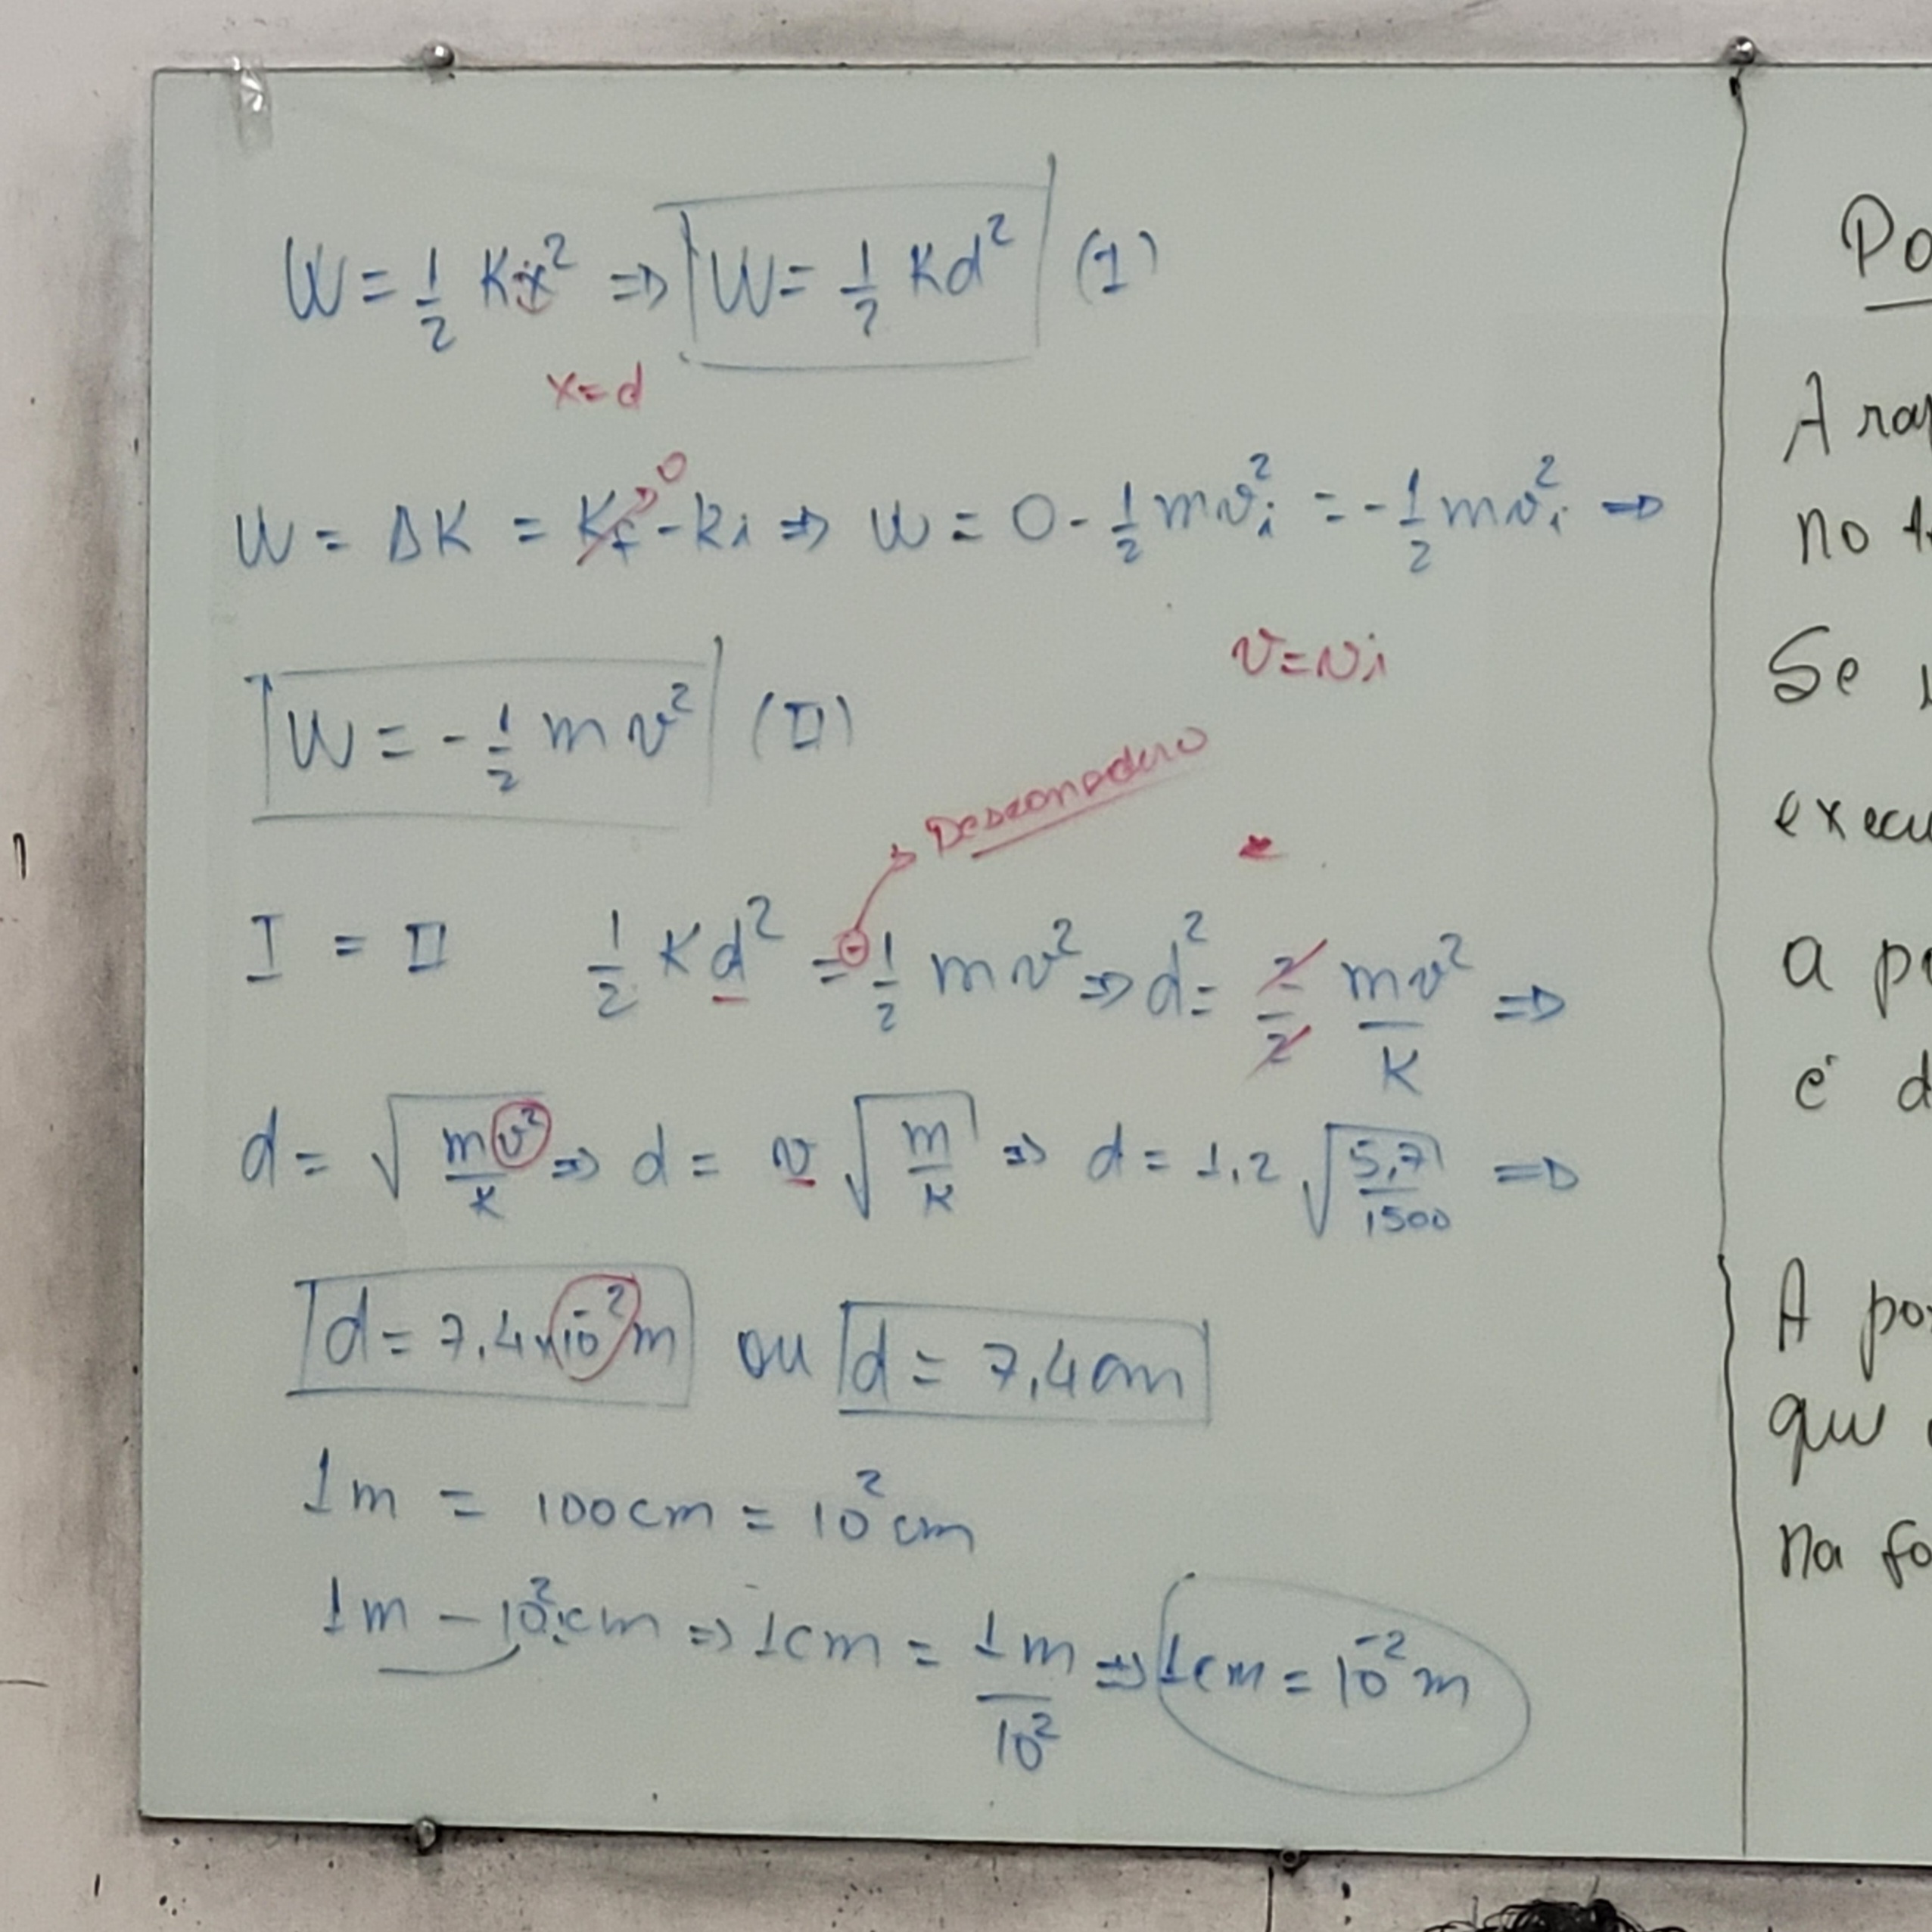 W = 1/2 Kx² ⇒ W = 1/2 Kd² (I)
x = d
W = ΔK = Kf - Ki ⇒ W = 0 - 1/2 mvi² = -1/2 mvi² ⇒
0
v = vi
W = -1/2 mv² (II)
I = II 1/2 Kd² = -1/2 mv² ⇒ d² = 2/2 mv²/K ⇒
d = √(mv²/K) ⇒ d = v √(m/K) ⇒ d = 1,2 √(5,7/1500) ⇒
d = 7,4x10⁻² m ou d = 7,4cm
1m = 100cm = 10² cm
1m - 10² cm ⇒ 1cm = 1m/10² ⇒ 1cm = 10⁻² m
Po
A ra
no t
Se
execu
a p
é d
A po
que
na fo